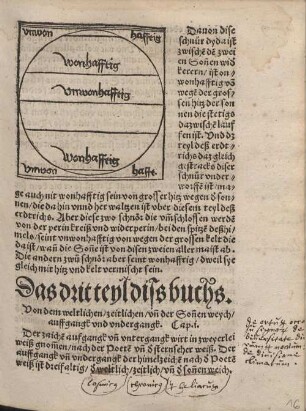 vnwon hafftig
wonhafftig
Vnwonhafftig
Wonhafftig
vnwon haffte
Dauon dise
schnůr dydaist
zwischē dē zwei
en Soñen wid
kerern / ist on
wonhafftig vō
wegē der gros
sen hitz der son
nen die stetigs
dazwischē lauf
fen ist. Vnd dz
reyl desß erdt
richs dz gleich
gestracks diser
schnůr vnder
worffē ist / ma
ge auch mit wonhafftig sein von grosser hitz wegen d̄ son
nen / die da hin vnnd her waltzen ist vber diesem reyl desß
erdtrichs. Aber diese zwo schnůr die vm̄schlossen werdē
von der perin kreiß vnd widerperin / bei den spitzē desß hi
melo / seint vnwonhafftig von wegen der grossen kelt die
da ist / wañ die Soñe ist von disen zweien aller maist ab.
Die andern zwū schnůr aber seint wonhafftig / dweil sye
gleich mit hitz vnd kelt vermischt sein.
Das drit teyl diss buchs.
Von dem weltlichen / zeitlichen / vñ der Soñen weych /
auffgangk vnd vndergangk. Cap. i.
Der zaichē auffgangk vñ vntergangk wirt in zweyerlei
weiß gnom̄en / nach der Poetē vñ d̄ sternseher weiß. Der
auffgangk vñ vndergangk der himelzeichē nach d̄ Poetē
weiß ist dreifaltig / weltlich / zeitlich / vñ d̄ soñen weich.
cosmicus chronicus heliacus
de ortu
signorum